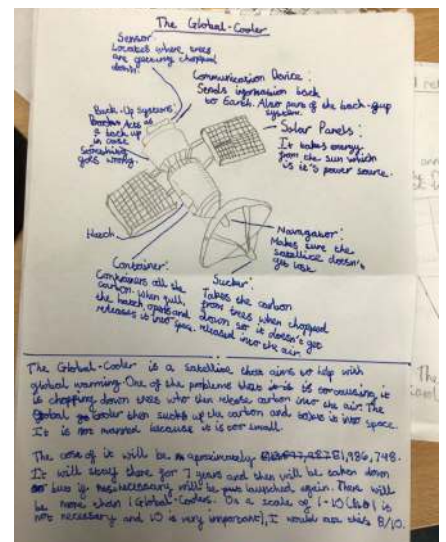 The Global-Cooler
Sensor:
Locates where trees
are getting chopped
down.
Communication Device:
Sends information back
to Earth. Also part of the back-up
system.
Back-Up Systems:
Acts as
a back up
in case
something
goes wrong.
Solar Panels:
It takes energy
from the sun which
is it's power source.
Hatch
Navigator:
Makes sure the
satellite doesn't
get lost.
Container:
Containers all the
carbon. When full,
the hatch opens and
releases it into space.
Sucker:
Takes the carbon
from trees when chopped
down so it doesn't get
released into the air.
The Global-Cooler is a satellite that aims to help with
global warming. One of the problems that is causing it
is chopping down trees who then release carbon into the air. The
Global cooler then sucks up the carbon and takes it into space.
It is not manned because it is too small.
The cost of it will be aproximately 1,986,748.
It will stay there for 7 years and then will be taken down
but if necessary will be launched again. There will
be more than 1 Global-Coolers. On a scale of 1-10 (1 is
not necessary and 10 is very important), I would rate this 8/10.